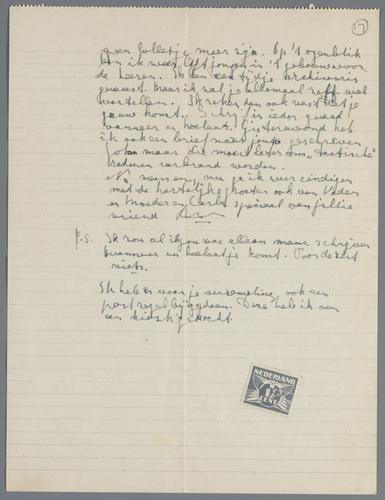 17
geen lolletje meer zijn. Op 't ogenblik
ben ik weer liftjongen in 't gebouw voor
de heeren. Ik ben een tijdje archivaris
geweest. Maar ik zal je allemaal zelf wel
vertellen. Ik reken dan ook vast dat je
gauw komt. Schrijf in ieder geval
wanneer en hoelaat. Gisteravond heb
ik ook een brief naar jou geschreven
maar die moest later om "tactische"
redenen verbrand worden.
Nu mensen, nu ga ik weer eindigen
met de hartelijke groeten ook van Vader
en Moeder en Carla speciaal van jullie
vriend
P.S. Ik zou als ik jou was alleen maar schrijven
wanneer en hoelaat je komt. Voor de rest
niets.
Ik heb er voor je verzameling ook een
postzegel bijgedaan. Deze heb ik aan
een kiosk gekocht.
NEDERLAND
1½
CENT